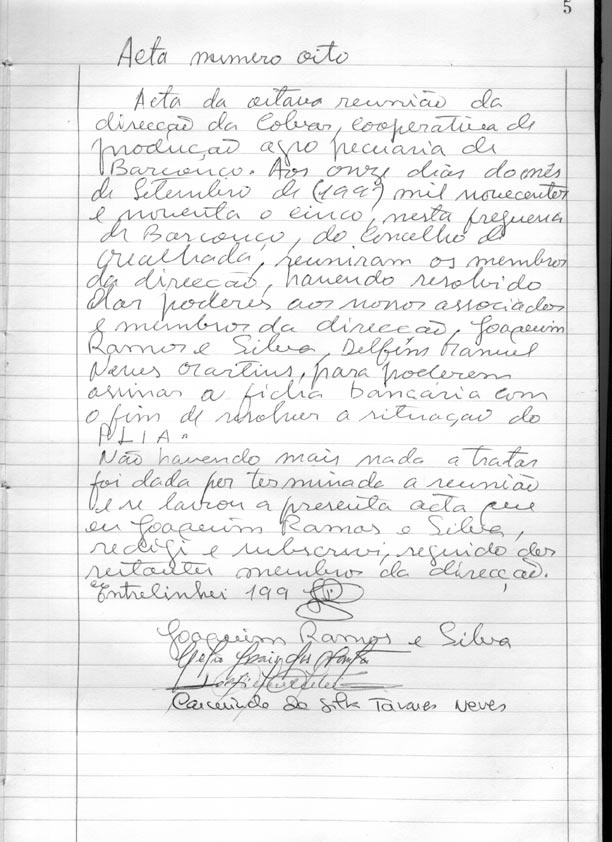 5
Acta numero oito
Acta da oitava reunião da
direcção da Cobar, Cooperativa de
produção agro pecuaria de
Barcouço. Aos onze dias do mês
de Setembro de (199 ) mil novecentos
e noventa e cinco, nesta freguesia
de Barcouço, do Concelho de
Mealhada, reuniram os membros
da direcção, havendo resolvido
dar poderes aos nossos associados
e membros da direcção, Joaquim
Ramos e Silva, Delfim Manuel
Neves Martins, para poderem
assinar a ficha bancária com
o fim de resolver a situação do
Não havendo mais nada a tratar
foi dada por terminada a reunião
e se lavrou a presente acta que
eu Joaquim Ramos e Silva,
redigi e subscrevi, seguido dos
restantes membros da direcção.
Entrelinhei 199
Joaquim Ramos e Silva
da Silva Tavares Neves